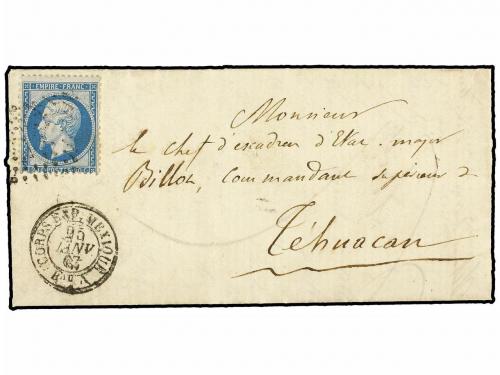 EMPIRE FRANC.
Monsieur
le chef d'escadron d'Etat-major
Billot, Commandant supérieur d
Téhuacan
CORPS EXP. MEXIQUE
25
JANV
67